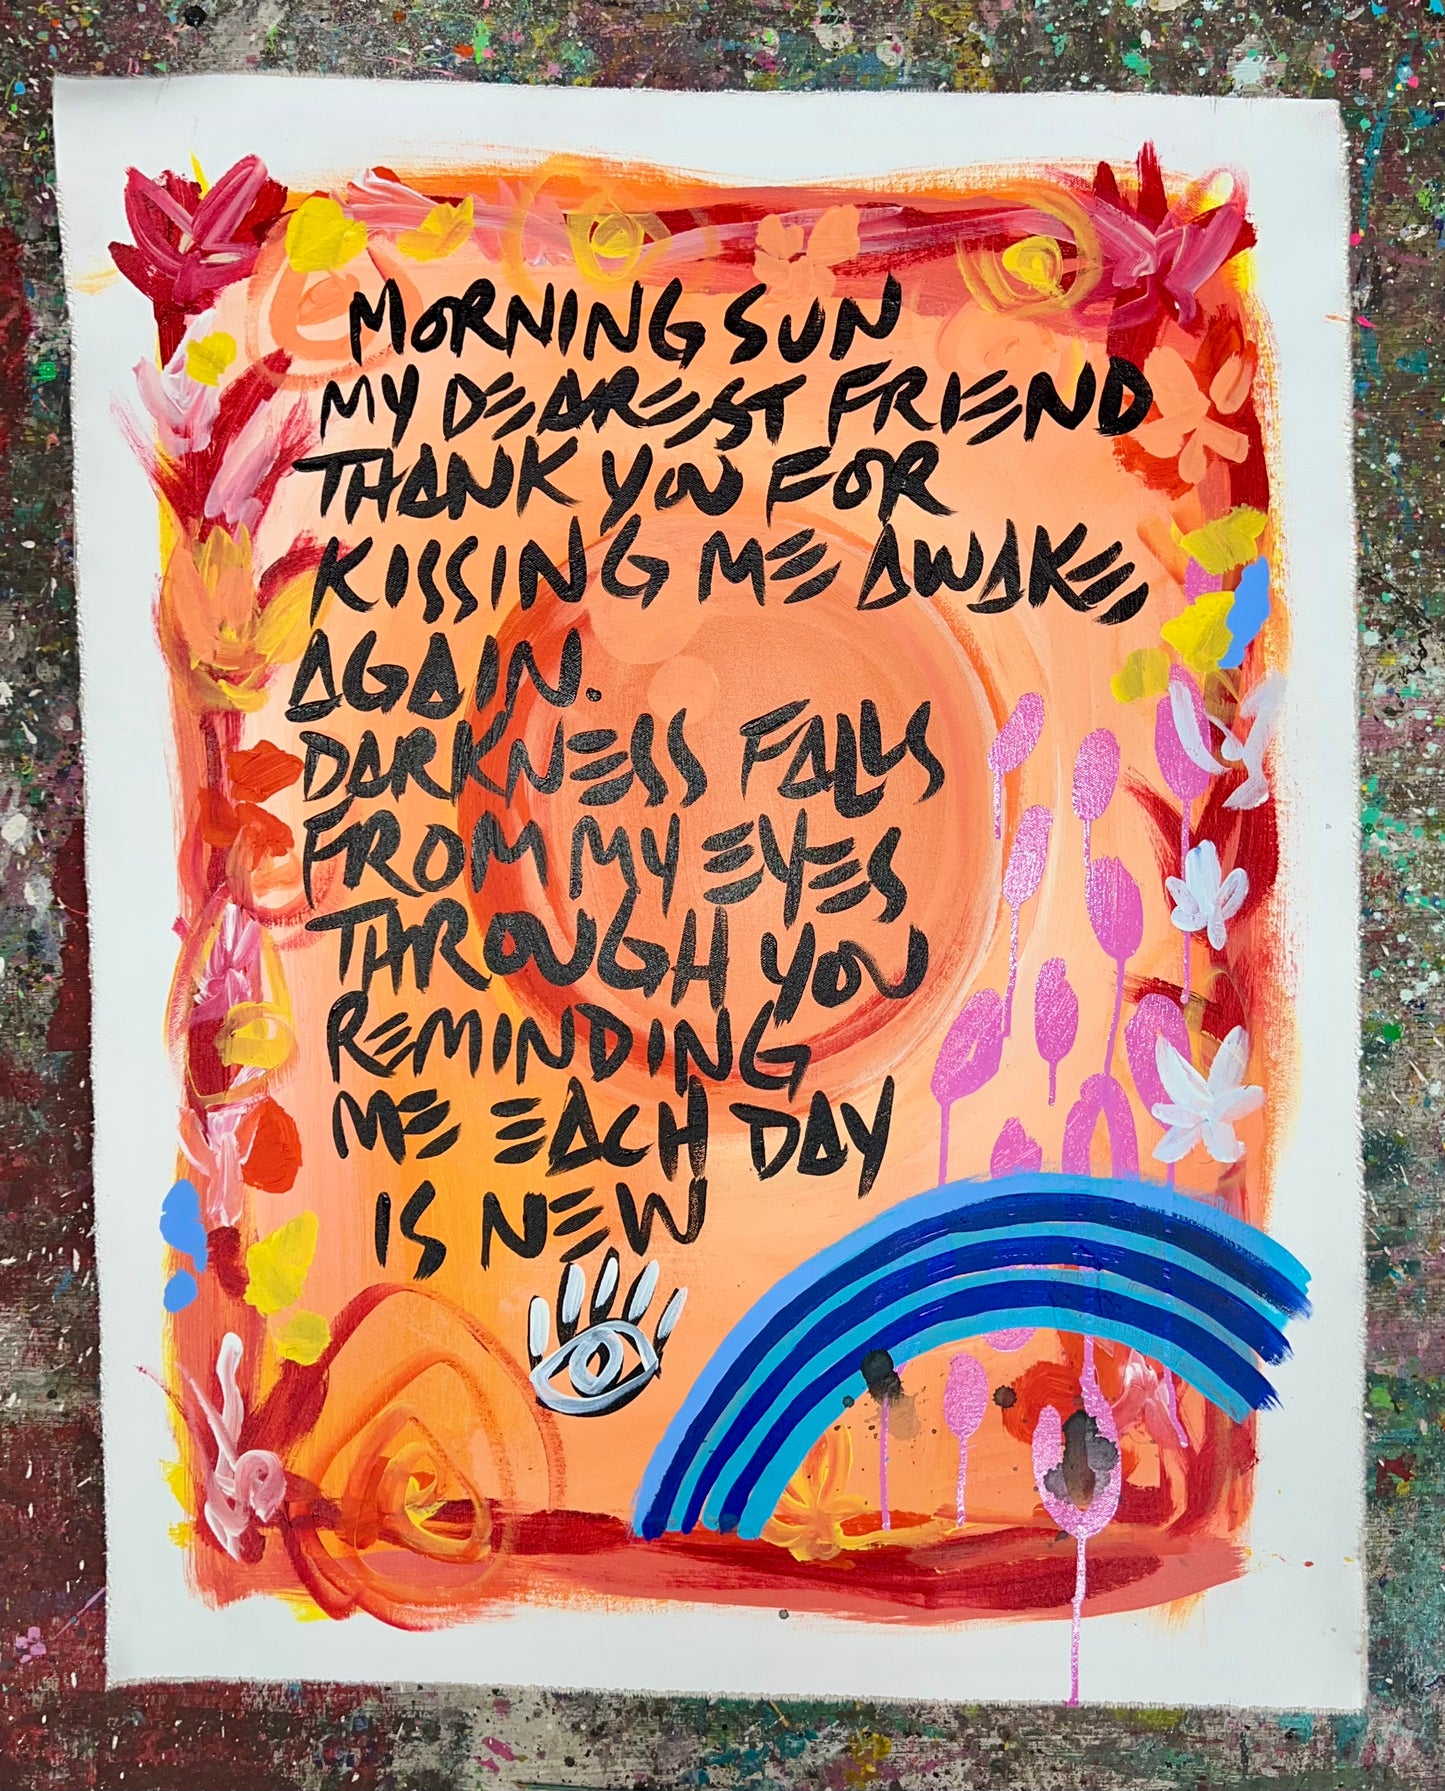 MORNING SUN
MY DEAREST FRIEND
THANK YOU FOR
KISSING ME AWAKE,
AGAIN.
DARKNESS FALLS
FROM MY EYES
THROUGH YOU
REMINDING
ME EACH DAY
IS NEW